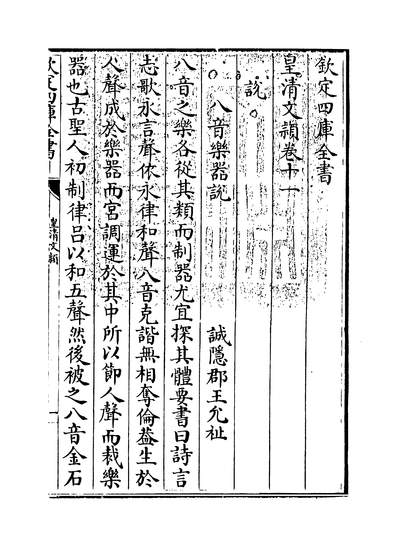 欽定四庫全書
皇清文頴卷十一
說
八音樂器說
誠隱郡王允祉
八音之樂各從其類而制器尤宜探其體要書曰詩言
志歌永言聲依永律和聲八音克諧無相奪倫葢生於
人聲成於樂器而宮調運於其中所以節人聲而裁樂
器也古聖人初制律呂以和五聲然後被之八音金石
欽定四庫全書
皇清文頴